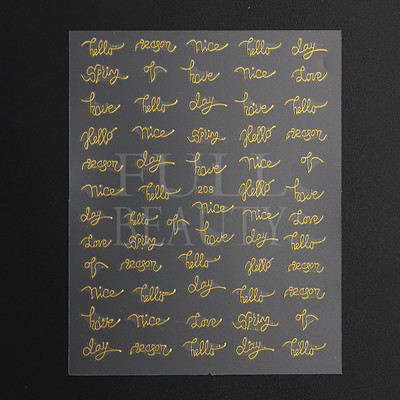 hello season Nice hello day
Spring of have Nice Love
have hello day have hello
Hello Nice Spring Hello season
season day have Nice of
FULL
Nice hello 208 Hello have
day hello of Nice Nice Love
BEAUTY
Love Spring have day hello
of season hello Hello season
Nice hello day hello season
have Nice Love Spring of
day season hello day hello